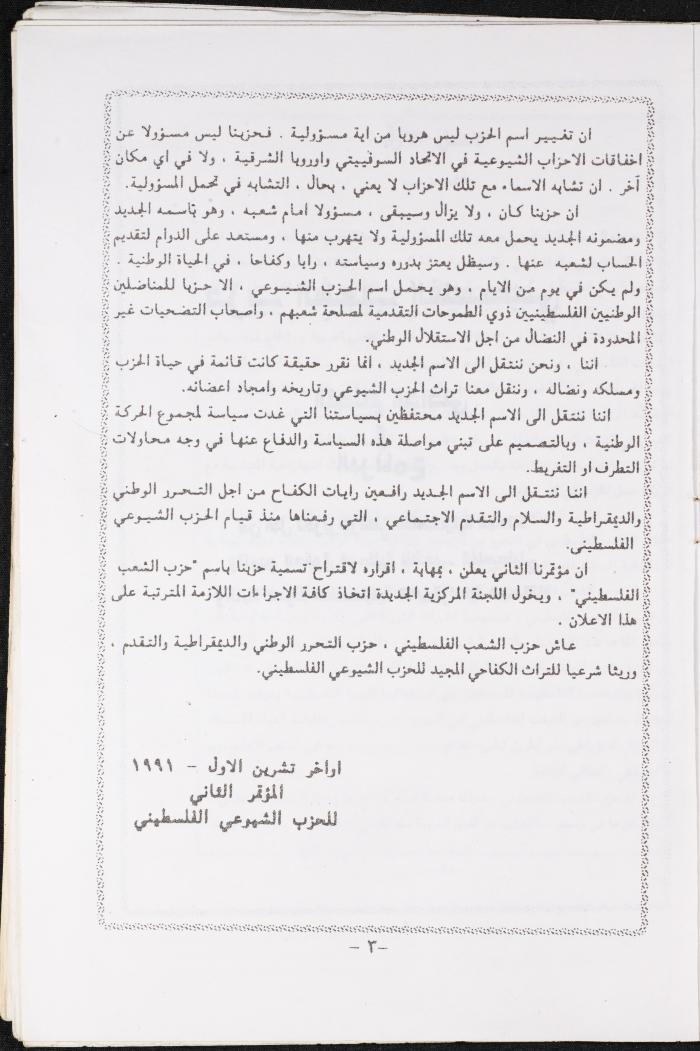 ان تغيير اسم الحزب ليس هروبا من اية مسؤولية . فحزبنا ليس مسؤولا عن
اخفاقات الاحزاب الشيوعية في الاتحاد السوفييتي واوروبا الشرقية ، ولا في اي مكان
آخر . ان تشابه الاسماء مع تلك الاحزاب لا يعني ، بحال ، التشابه في تحمل المسؤولية.
ان حزبنا كان ، ولا يزال وسيبقى ، مسؤولا امام شعبه ، وهو بآسمه الجديد
ومضمونه الجديد يحمل معه تلك المسؤولية ولا يتهرب منها ، ومستعد على الدوام لتقديم
الحساب لشعبه عنها . وسيظل يعتز بدوره وسياسته ، رايا وكفاحا ، في الحياة الوطنية .
ولم يكن في يوم من الايام ، وهو يحمل اسم الحزب الشيوعي ، الا حزبا للمناضلين
الوطنيين الفلسطينيين ذوي الطموحات التقدمية لمصلحة شعبهم ، واصحاب التضحيات غير
المحدودة في النضال من اجل الاستقلال الوطني.
اننا ، ونحن ننتقل الى الاسم الجديد ، انما نقرر حقيقة كانت قائمة في حياة الحزب
ومسلكه ونضاله ، وننقل معنا تراث الحزب الشيوعي وتاريخه وامجاد اعضائه.
اننا ننتقل الى الاسم الجديد محتفظين بسياستنا التي غدت سياسة لمجموع الحركة
الوطنية ، وبالتصميم على تبني مواصلة هذه السياسة والدفاع عنها في وجه محاولات
التطرف او التفريط.
اننا ننتقل الى الاسم الجديد رافعين رايات الكفاح من اجل التحرر الوطني
والديمقراطية والسلام والتقدم الاجتماعي ، التي رفعناها منذ قيام الحزب الشيوعي
الفلسطيني.
ان مؤتمرنا الثاني يعلن ، بمهابة ، اقراره لاقتراح تسمية حزبنا باسم "حزب الشعب
الفلسطيني" ، ويخول اللجنة المركزية الجديدة اتخاذ كافة الاجراءات اللازمة المترتبة على
هذا الاعلان .
عاش حزب الشعب الفلسطيني ، حزب التحرر الوطني والديمقراطية والتقدم ،
وريثا شرعيا للتراث الكفاحي المجيد للحزب الشيوعي الفلسطيني.
اواخر تشرين الاول - ١٩٩١
المؤتمر الثاني
للحزب الشيوعي الفلسطيني
-٣-